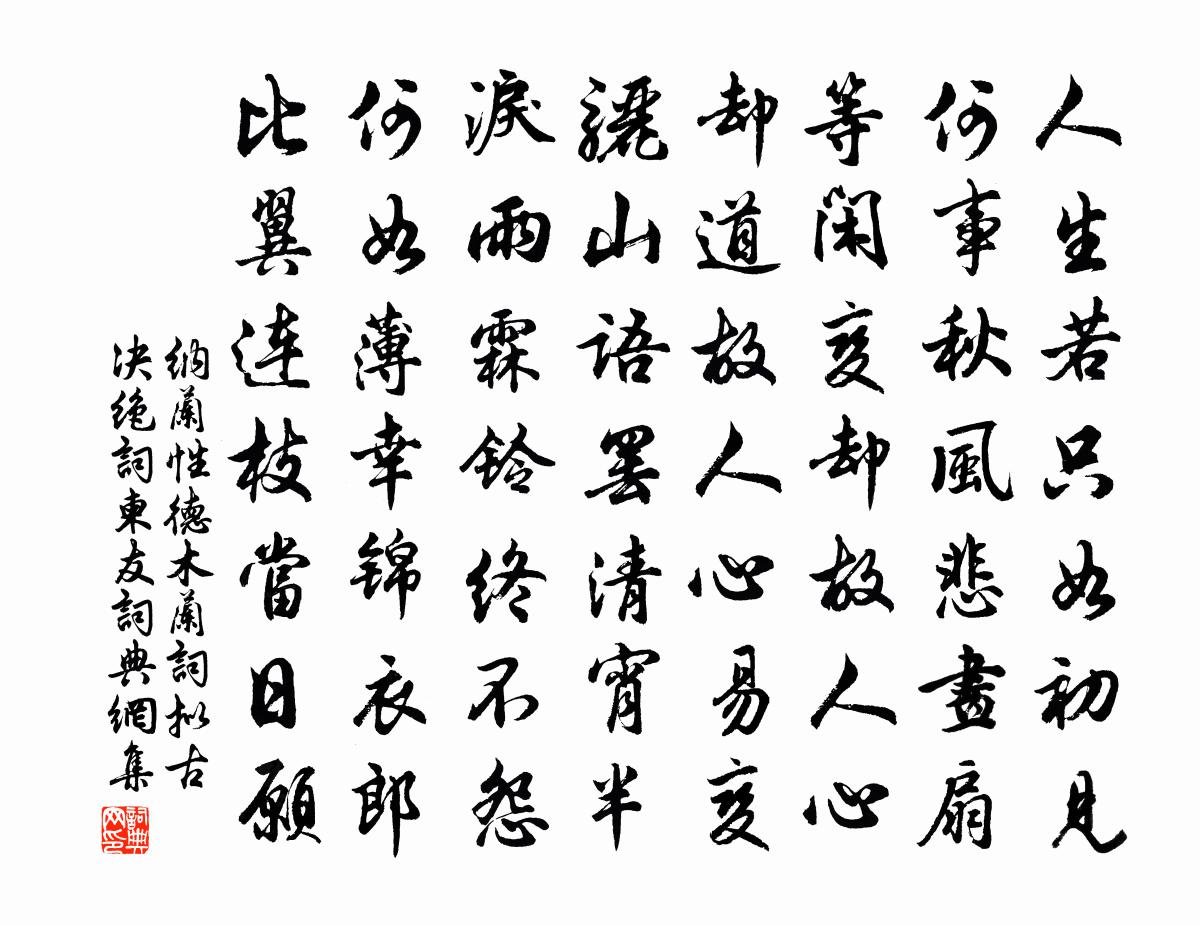 人生若只如初見
何事秋風悲畫扇
等閑變却故人心
却道故人心易變
驪山語罷清宵半
淚雨霖鈴終不怨
何如薄幸錦衣郎
比翼連枝當日願
納蘭性德木蘭詞拟古
决絶詞柬友詞典網集
詞典
网印